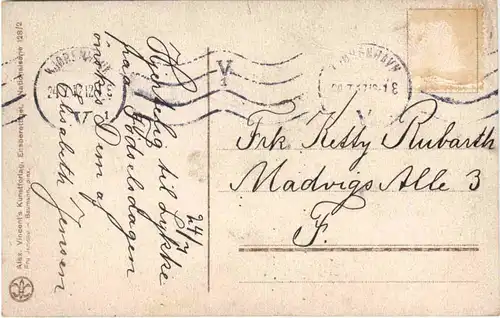 24/7
Hjertelig til Lykke
paa Fødselsdagen
ønskes Dem af
Elisabeth Jensen
Frk Ketty Rubarth
Madvigs Alle 3
F.
KJØBENHAVN
V
1
KJØBENHAVN
V
Alex. Vincent's Kunstforlag, Eneberettiget. Nationalserie 128/2